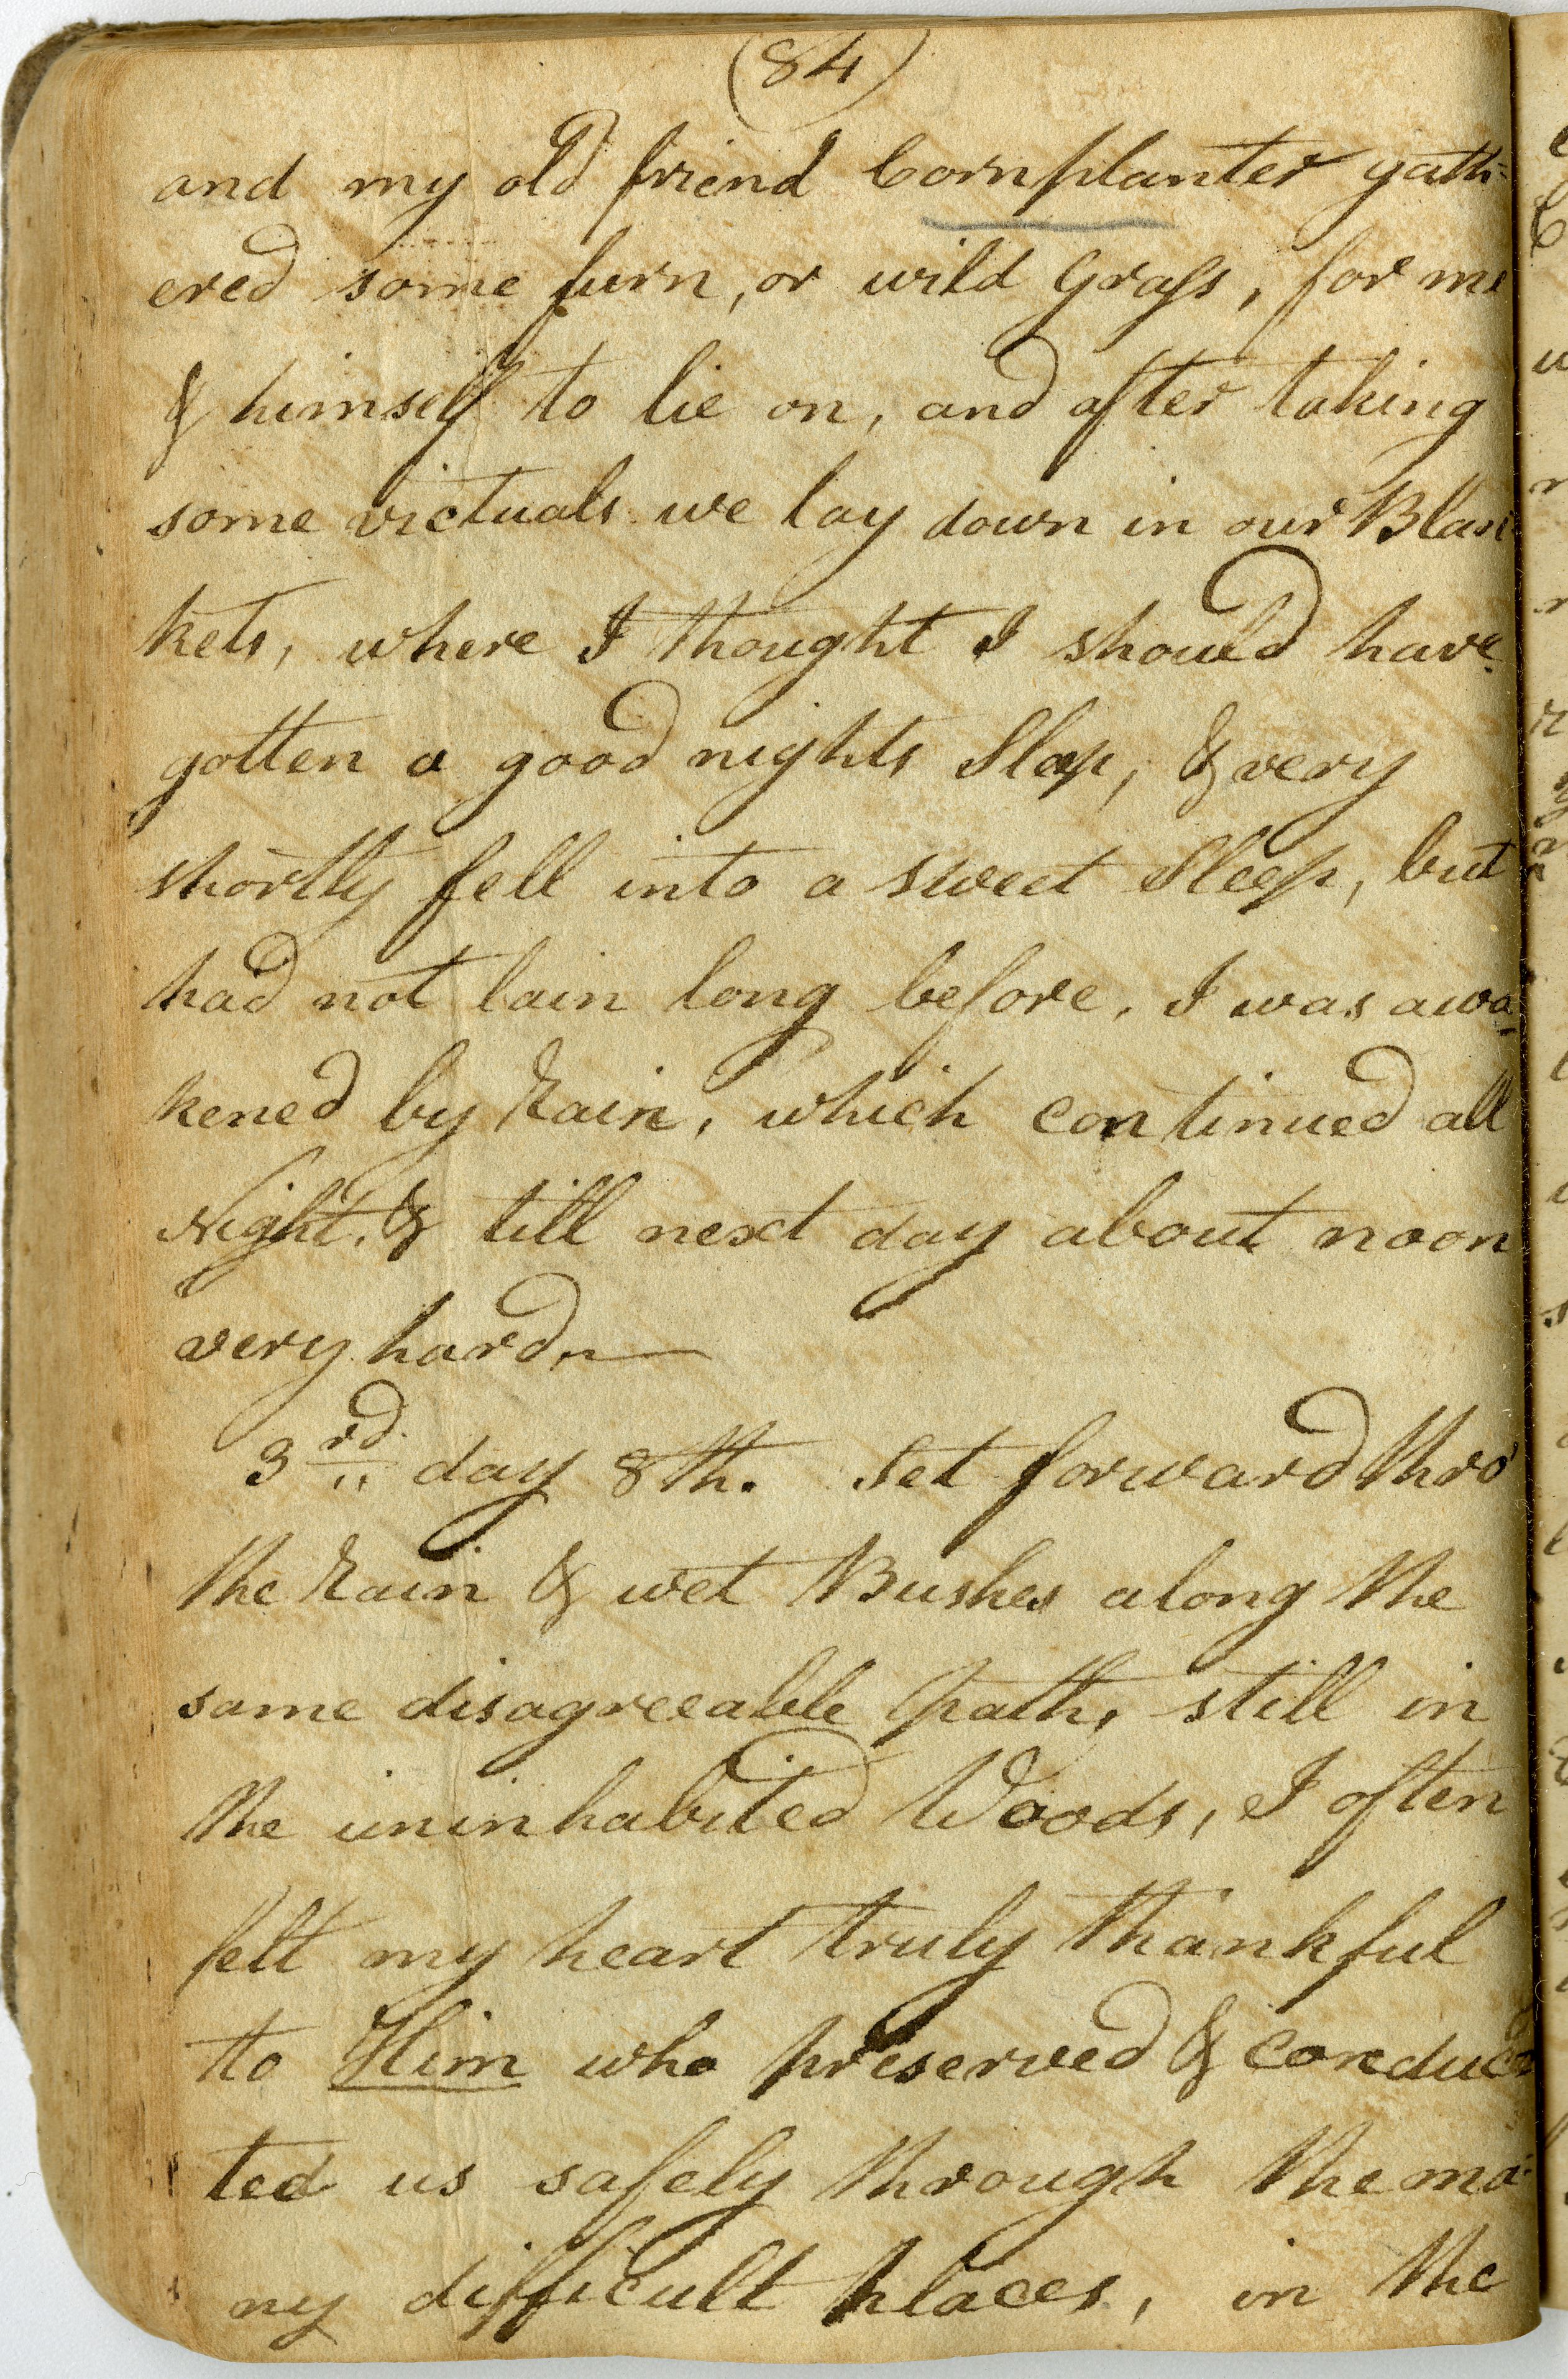 (84)
and my old friend Cornplanter gath=
ered some furn, or wild Grass, for me
& himself to lie on, and after taking
some victuals we lay down in our Blan
kets, where I thought I should have
gotten a good nights Sleep, & very
shortly fell into a sweet Sleep, but
had not lain long before, I was awa
kened by Rain, which continued all
Night, & till next day about noon
very hard,
3rd day 8th. Set forward thro'
the Rain & wet Bushes along the
same disagreeable path, still in
the uninhabited Woods, I often
felt my heart truly thankful
to Him who preserved & conduc
ted us safely through the ma-
ny difficult places, in the